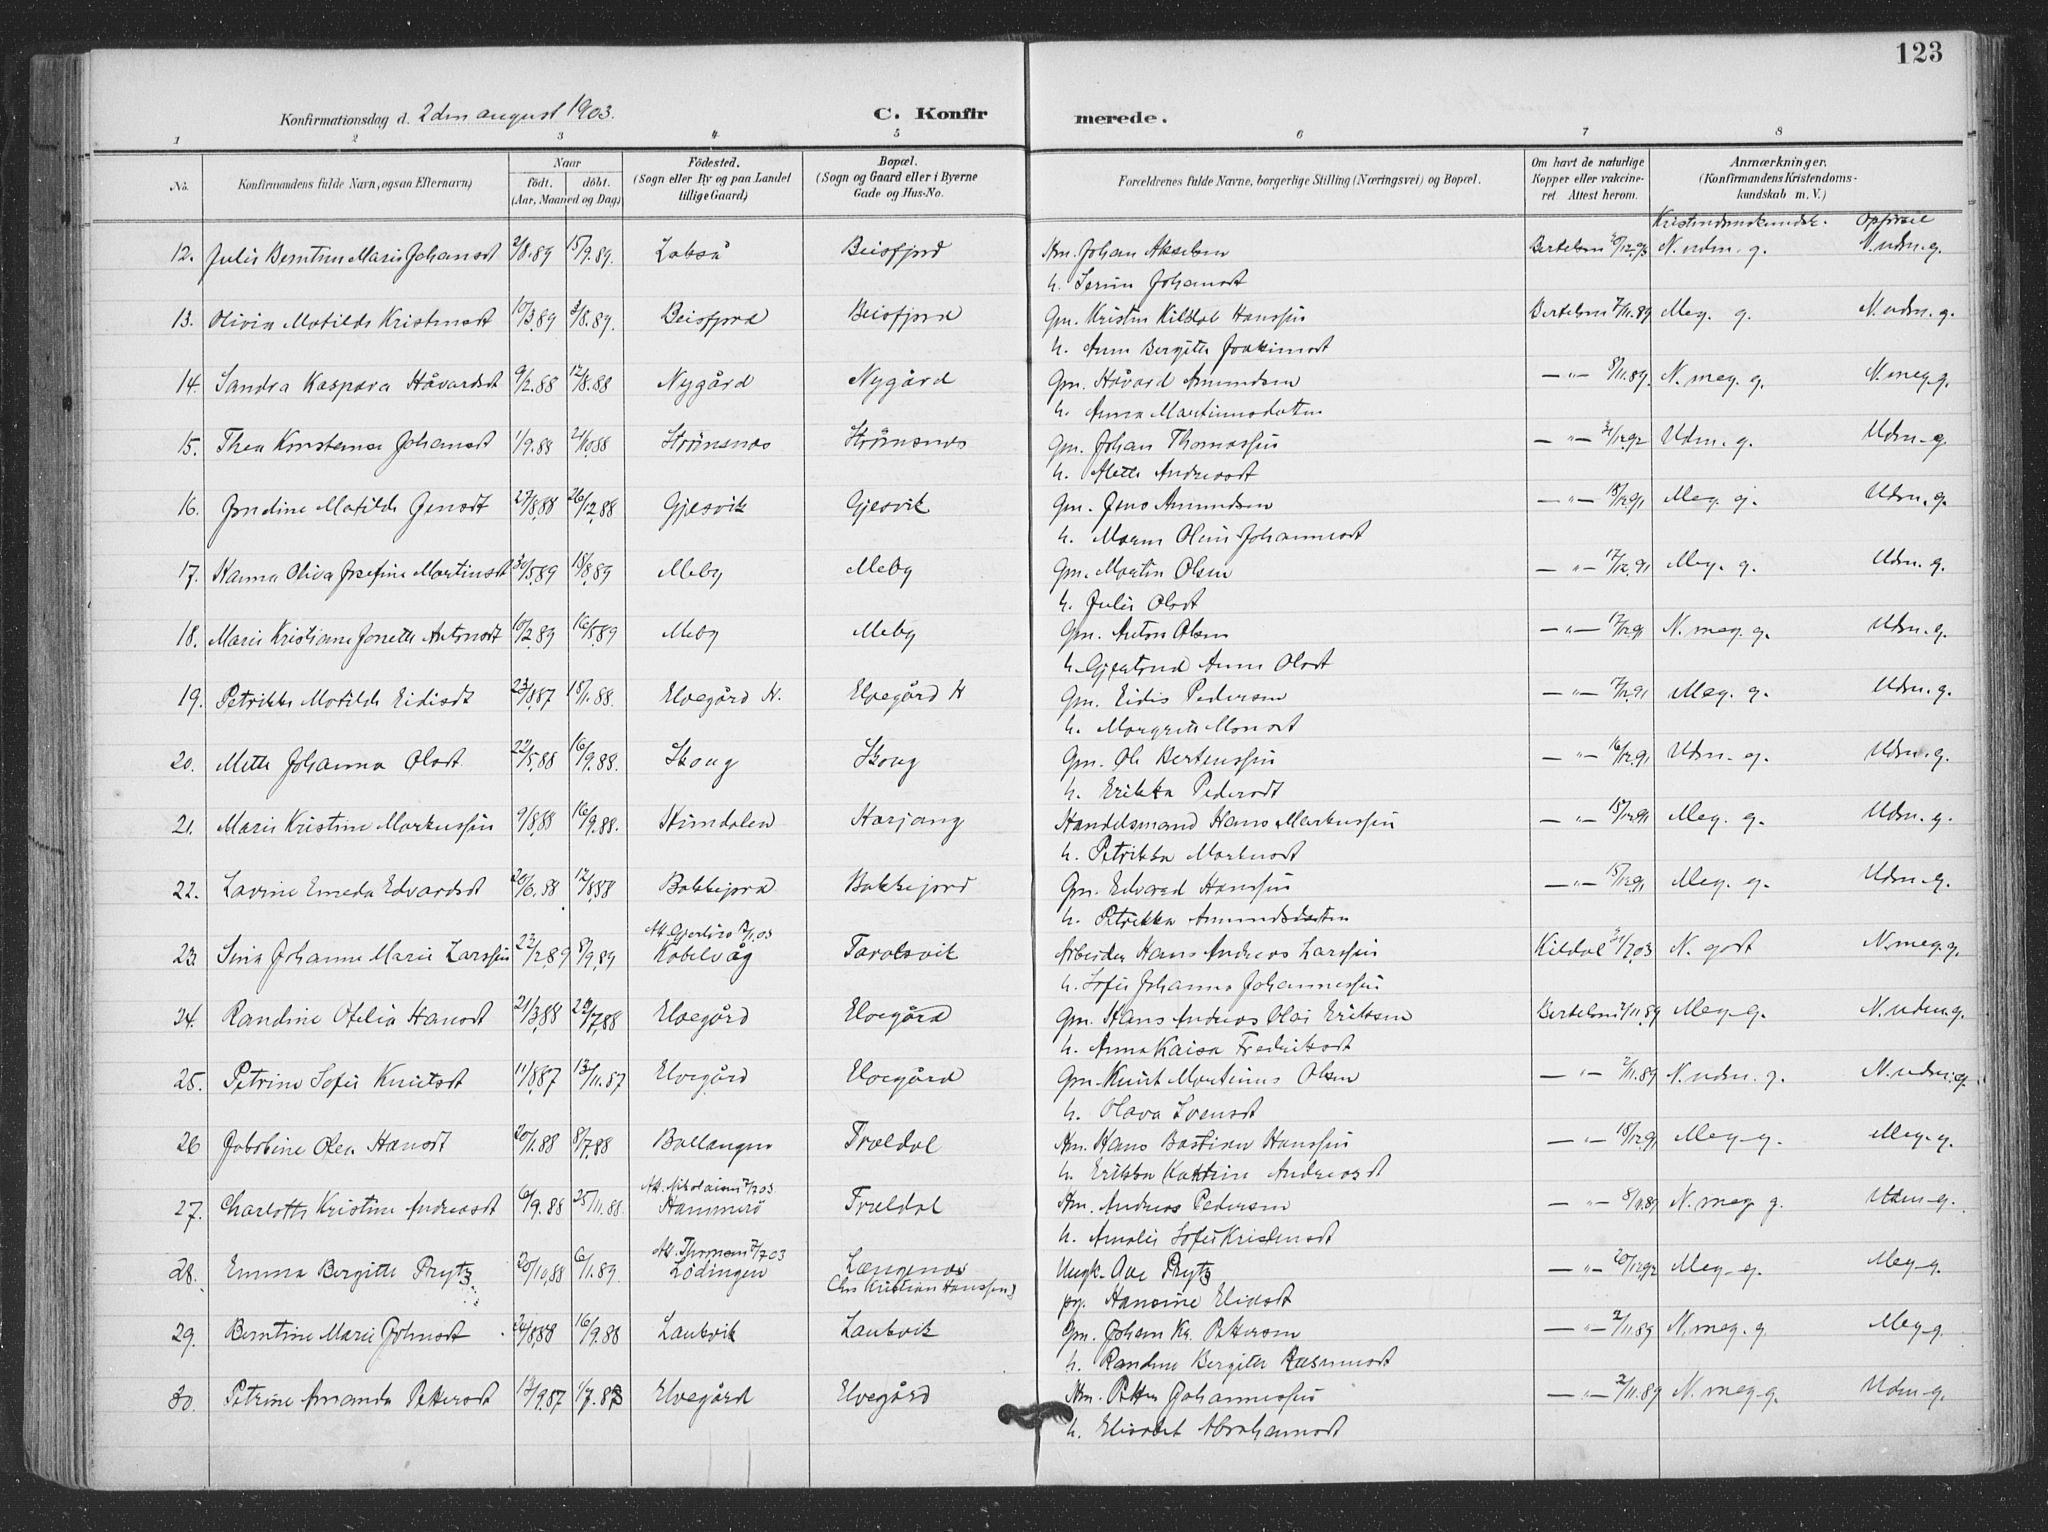 123
Konfirmationsdag d. 2den august 1903.
C. Konfirmerede.
1 2 3 4 5 6 7 8
No. Konfirmandens fulde Navn, ogsaa Efternavn, Naar födt. döbt. (Aar, Maaned og Dag) Födested. (Sogn eller By og paa Landet tillige Gaard) Bopæl. (Sogn og Gaard eller i Byerne Gade og Hus-No. Forældrenes fulde Navne, borgerlige Stilling (Næringsvei) og Bopæl. Om havt de naturlige Kopper eller vakcineret Attest herom. Anmærkninger. (Konfirmandens Kristendomskundskab m. V.)
Kristendomskundsk. Opførsel
12. Julie Berntine Marie Johansdt 2/8.89 15/9.89. Beisfjord Johan Akselsen Bertelsen N. udm. g. N. udm. g.
h. Johansdt
13. Olivia Matilde Kristensdt 10/3.89 3/8.89. Beisfjord Beisfjord Gm. Kristen Kildal Hanssen Bertelsen 7/11.89 Meg. g. N. udm. g.
h. Anne Bergitte Joakimsdt
14. Sandra Kaspara Håvardsdt 9/2.88 12/8.88 Nygård Nygård Gm. Håvard Amundsen — „ — 8/11.89. N. meg. g. N. meg. g.
h. Anna Martinusdatter
15. Thea Konstanse Johansdt 1/9.88 21/10.88 Strømsnes Strømsnes Gm. Johan Thomassen — „ — 31/12.92 Udm. g. Udm. g.
h. Alette Andreasdt
16. Jondine Matilde Jensdt 27/8.88 26/12.88 Gjesvik Gjesvik Gm. Jens Amundsen — „ — 18/12.91 Meg. g. Udm. g.
h. Maren Oline Johannesdt
17. Hanna Oliva Josefine Martinsdt 30/5.89 18/8.89 Meby Meby Gm. Martin Olsen — „ — 17/12.91 Meg. g. Udm. g.
h. Julie Olsdt
18. Marie Kristiane Jonette Antonsdt 10/2.89 16/5.89 Meby Meby Gm. Anton Olsen — „ — 17/12.91 N. meg. g. Udm. g.
h. Gjertrud Anne Olsdt
19. Petrikke Matilde Eidisdt 23/8.87 15/1.88. Elvegård H. Elvegård H Gm. Eidis Pedersen — „ — 17/12.91 Meg. g. Udm. g.
h. Margrete Monsdt
20. Mette Johanna Olsdt 22/5.88 16/9.88. Skoug Skoug Gm. Ole Bertenssen — „ — 16/12.91 Udm. g. Udm. g.
h. Erikka Pedersdt
21. Marie Kristine Markussen 9/8.88 16/9.88. Skindalen Harjang Handelsmand Hans Markussen — „ — 15/12.91 Meg. g. Udm. g.
h. Petrikka Markusdt
22. Lavine Emeda Edvardsdt 20/6.88 12/8.88 Bakkejord Bakkejord Gm. Edvard Hanssen — „ — 15/12.91 Meg. g. Udm. g.
h. Petrikka Amundsdatter
23. Sina Johanne Marie Larssen 22/2.89 8/9.89 Kobelvåg Taraldsvik Arbeider Hans Andreas Larssen Kildal 31/7.03 N. godt N. meg. g.
h. Sofie Johanna Johannessen
24. Randine Ofelia Hansdt 21/3.88 22/7.88 Elvegård Elvegård Gm. Hans Andreas Olai Eriksen Bertelsen 7/11.89 Meg. g. N. udm. g.
h. Anna Kaisa Fredriksdt
25. Petrine Sofie Knutsdt 11/8.87 13/11.87 Elvegård Elvegård Gm. Knut Martinus Olsen — „ — 2/11.89 N. udm. g. N. udm. g.
h. Olava Svensdt
26 Jakobine Olea Hansdt 20/1.88 8/7.88 Ballangen Trældal Hans Bastian Hanssen — „ — 18/12.91 Meg. g. Meg. g.
h. Erikka Katrine Andreasdt
27. Charlotte Kristine Andreasdt 6/9.88 25/11.88. Att. Nikolaisen 7/7.03 Hammerö Trældal Andreas Pedersen — „ — 8/11.89 N. meg. g. Udm. g.
h. Amalie Sofie Kristensdt
28. Emma Bergitte Prytz 20/10.88 6/1.89. Lödingen Længenes (hos Kristian Hanssen) Ungk. Ove Prytz — „ — 20/12.92 Meg. g. Meg. g.
pg. Hansine Eliasdt
29. Berntine Marie Johansdt 24/8.88 16/9.88 Laukvik Laukvik Gm. Johan Kr. Pettersen — „ — 2/11.89 N. meg. g. Meg. g.
h. Randine Bergitte Rasmusdt
30. Petrine Amanda Pettersdt 13/9.87 1/7.88 Elvegård Elvegård Petter Johannessen — „ — 2/11.89 N. meg. g. Udm. g.
h. Elisabet Abrahamsdt